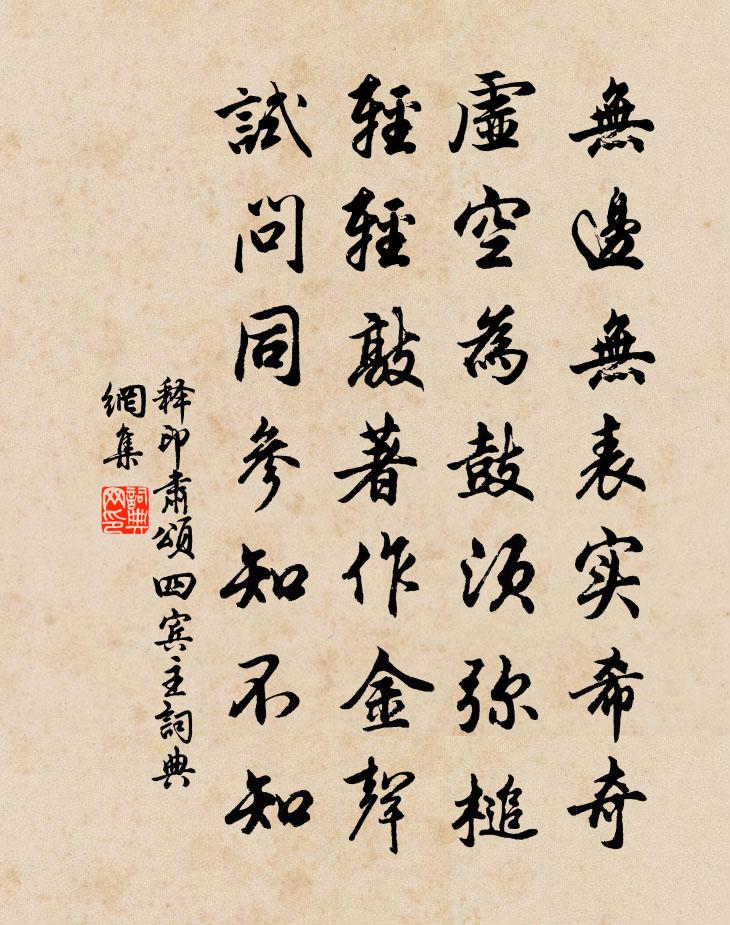 無邊無表实希奇
虛空為鼓須弥槌
輕輕敲著作金聲
試問同參知不知
释印肅頌四宾主詞典
網集
詞典
网印